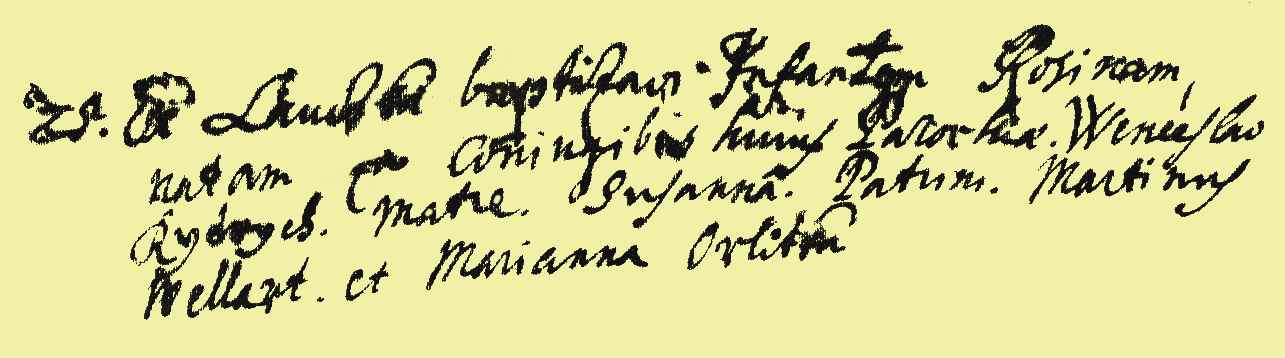 28. Ex baptisavi Infantem Rosinam,
natam Ex Coniugibus huius Parochiæ. Wenceslao
Rydrych. matre. Susanna. Patrini. Martinus
Wellart. et Marianna Orlitin